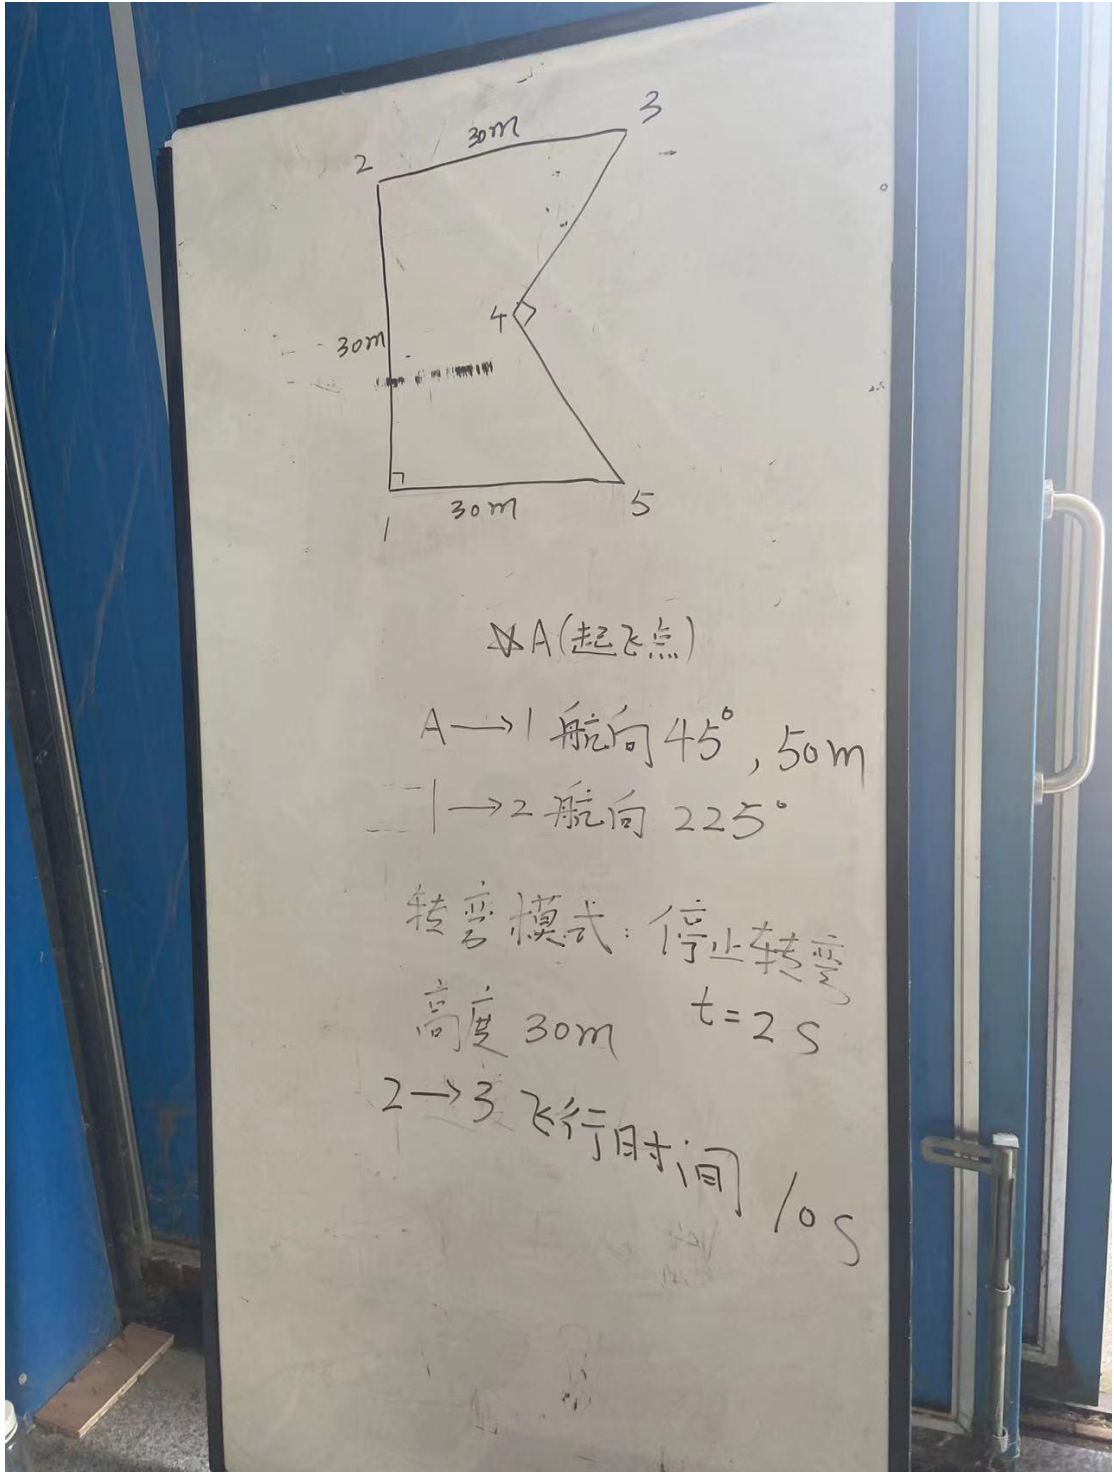 3
30m
2
4
30m
1
30m
5
A(起飞点)
A→1 航向45°,50m
1→2 航向 225°
转弯模式:停止转弯
t=2s
高度 30m
2→3 飞行时间 10s